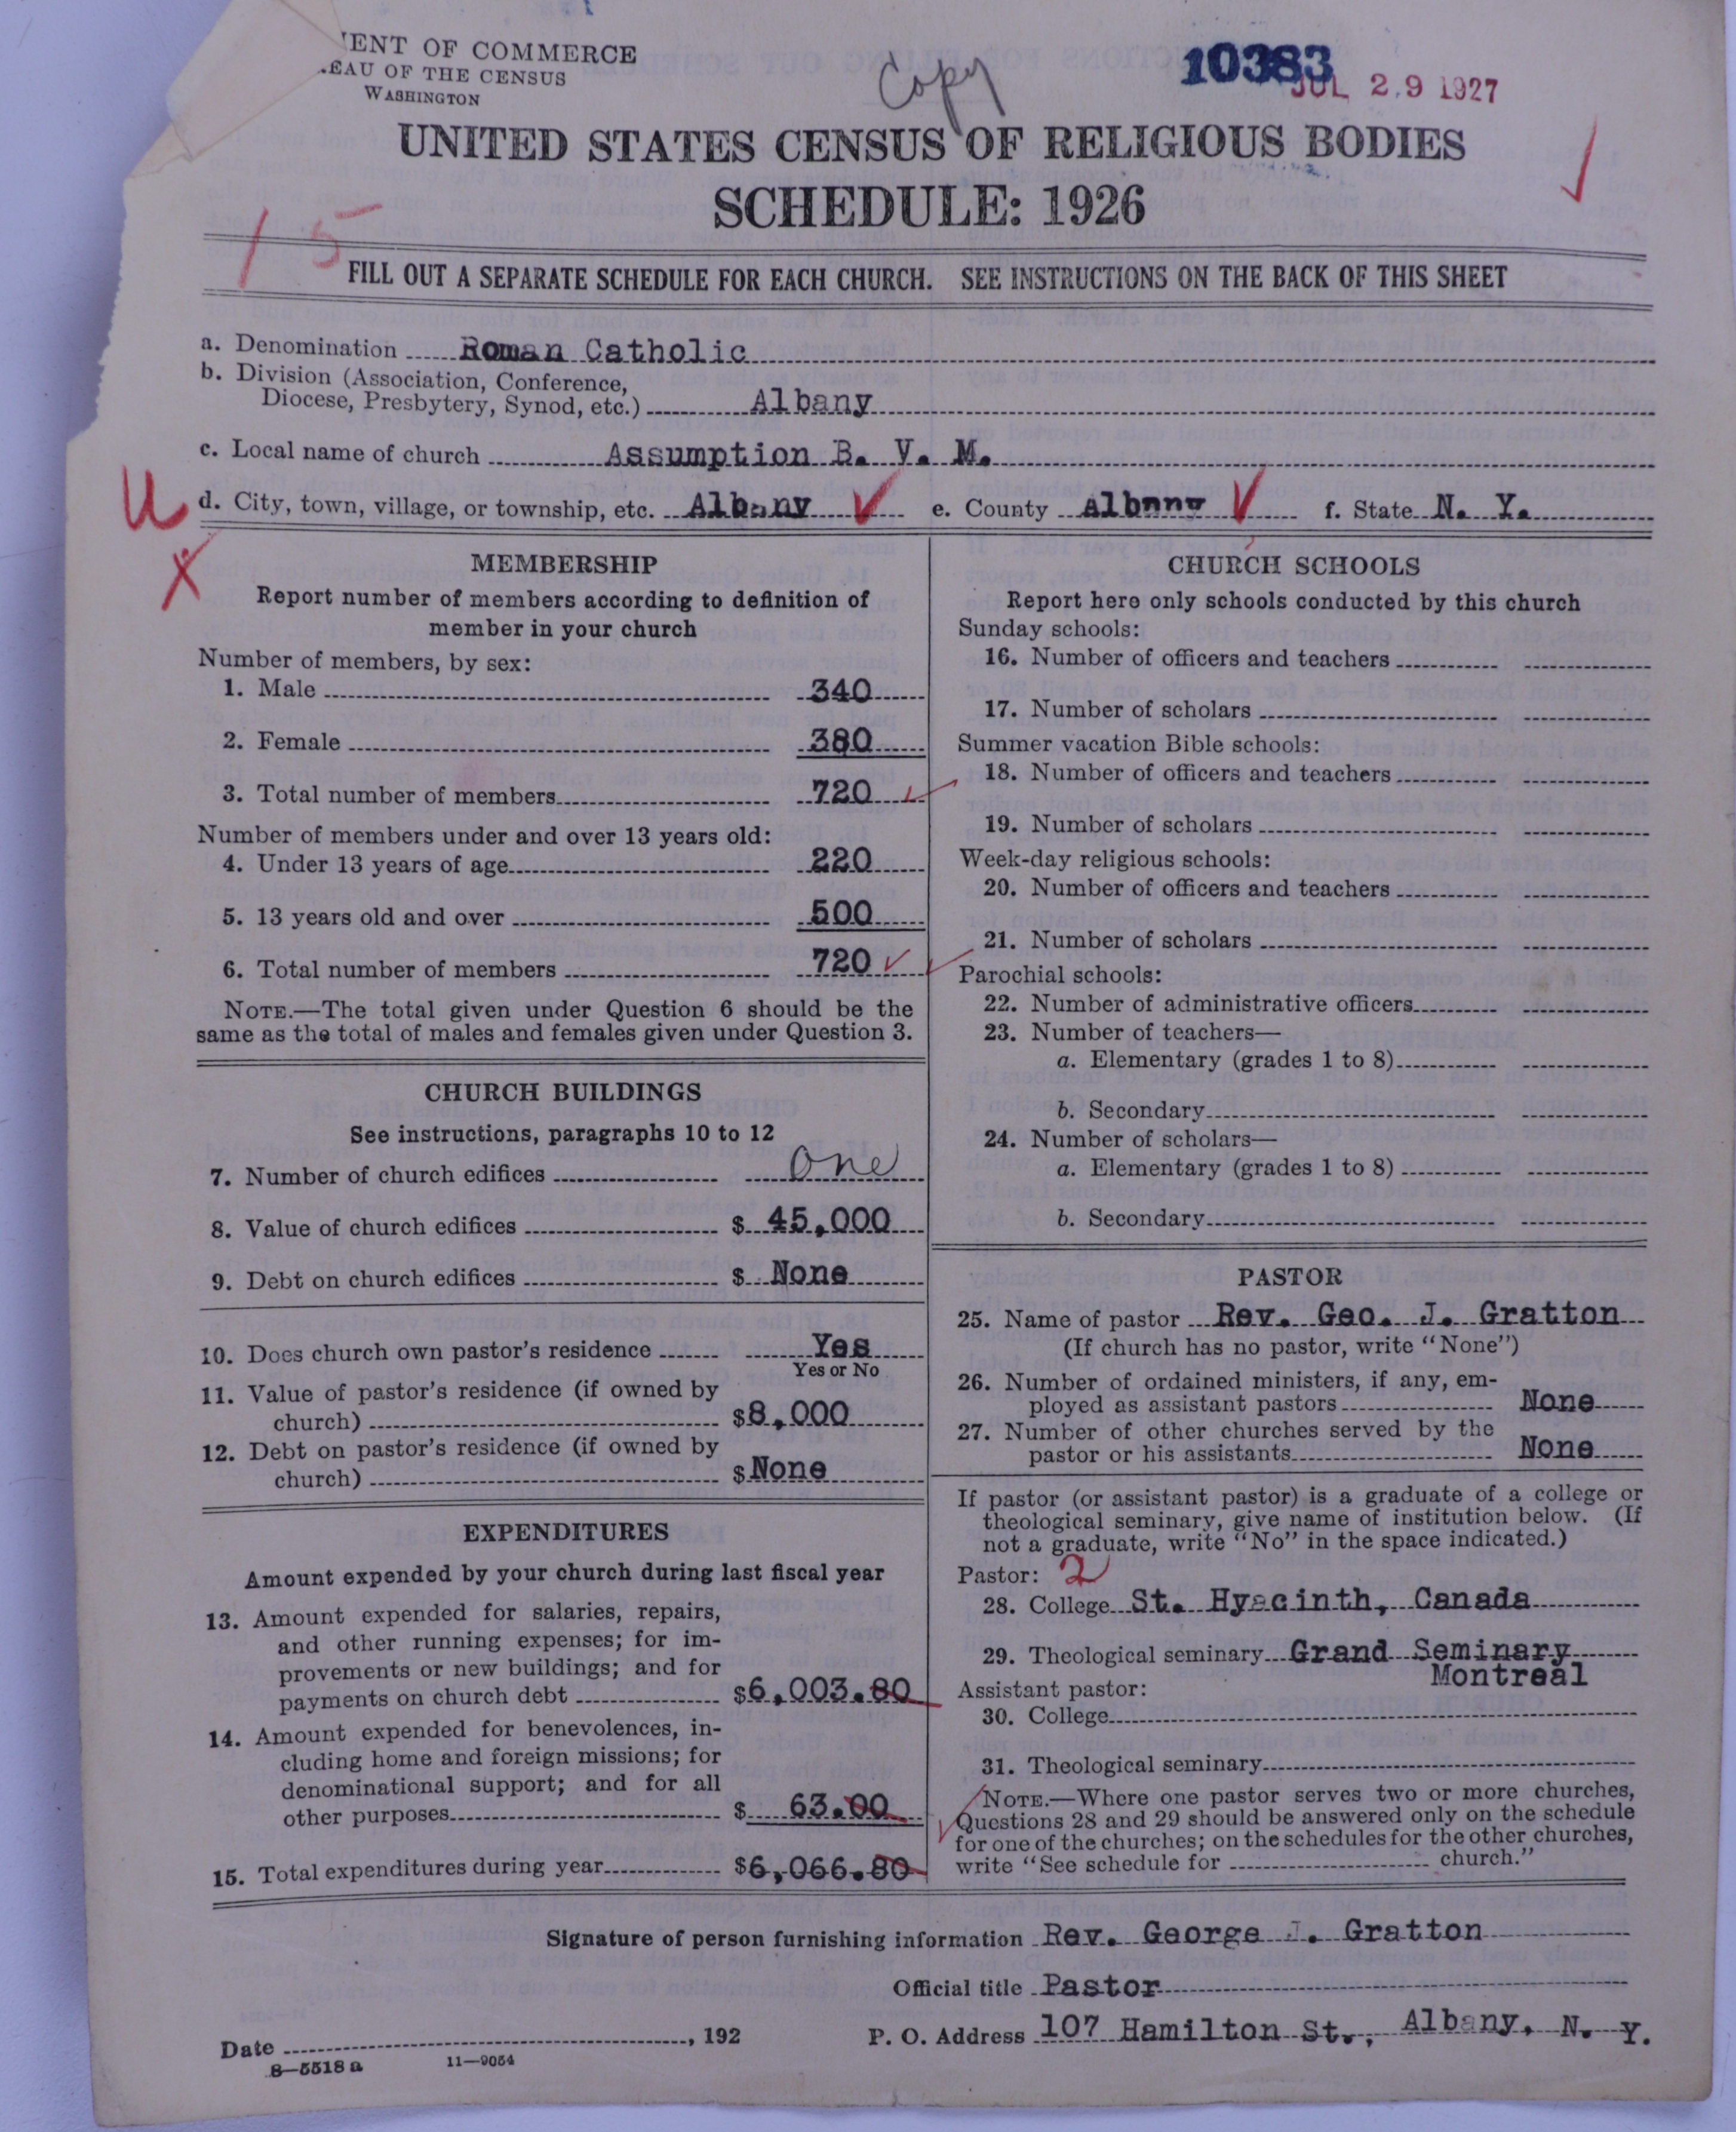 MENT OF COMMERCE
EAU OF THE CENSUS
WASHINGTON
Copy
10383
JUL 29 1927
UNITED STATES CENSUS OF RELIGIOUS BODIES
SCHEDULE: 1926
15
FILL OUT A SEPARATE SCHEDULE FOR EACH CHURCH. SEE INSTRUCTIONS ON THE BACK OF THIS SHEET
a. Denomination Roman Catholic
b. Division (Association, Conference,
Diocese, Presbytery, Synod, etc.) Albany
c. Local name of church Assumption B. V. M.
U
d. City, town, village, or township, etc. Albany e. County Albany f. State N. Y.
X
MEMBERSHIP
Report number of members according to definition of
member in your church
Number of members, by sex:
1. Male 340
2. Female 380
3. Total number of members 720
Number of members under and over 13 years old:
4. Under 13 years of age 220
5. 13 years old and over 500
6. Total number of members 720
NOTE.—The total given under Question 6 should be the
same as the total of males and females given under Question 3.
CHURCH BUILDINGS
See instructions, paragraphs 10 to 12
7. Number of church edifices One
8. Value of church edifices $ 45,000
9. Debt on church edifices $ None
10. Does church own pastor's residence Yes
Yes or No
11. Value of pastor's residence (if owned by
church) $8,000
12. Debt on pastor's residence (if owned by
church) $None
EXPENDITURES
Amount expended by your church during last fiscal year
13. Amount expended for salaries, repairs,
and other running expenses; for im-
provements or new buildings; and for
payments on church debt $6,003.80
14. Amount expended for benevolences, in-
cluding home and foreign missions; for
denominational support; and for all
other purposes $ 63.00
15. Total expenditures during year $6,066.80
CHURCH SCHOOLS
Report here only schools conducted by this church
Sunday schools:
16. Number of officers and teachers
17. Number of scholars
Summer vacation Bible schools:
18. Number of officers and teachers
19. Number of scholars
Week-day religious schools:
20. Number of officers and teachers
21. Number of scholars
Parochial schools:
22. Number of administrative officers
23. Number of teachers—
a. Elementary (grades 1 to 8)
b. Secondary
24. Number of scholars—
a. Elementary (grades 1 to 8)
b. Secondary
PASTOR
25. Name of pastor Rev. Geo. J. Gratton
(If church has no pastor, write "None")
26. Number of ordained ministers, if any, em-
ployed as assistant pastors None
27. Number of other churches served by the
pastor or his assistants None
If pastor (or assistant pastor) is a graduate of a college or
theological seminary, give name of institution below. (If
not a graduate, write "No" in the space indicated.)
Pastor: 2
28. College St. Hyacinth, Canada
29. Theological seminary Grand Seminary
Montreal
Assistant pastor:
30. College
31. Theological seminary
NOTE.—Where one pastor serves two or more churches,
Questions 28 and 29 should be answered only on the schedule
for one of the churches; on the schedules for the other churches,
write "See schedule for church."
Signature of person furnishing information Rev. George J. Gratton
Official title Pastor
Date , 192 P. O. Address 107 Hamilton St., Albany, N. Y.
8—5518 a 11—9054